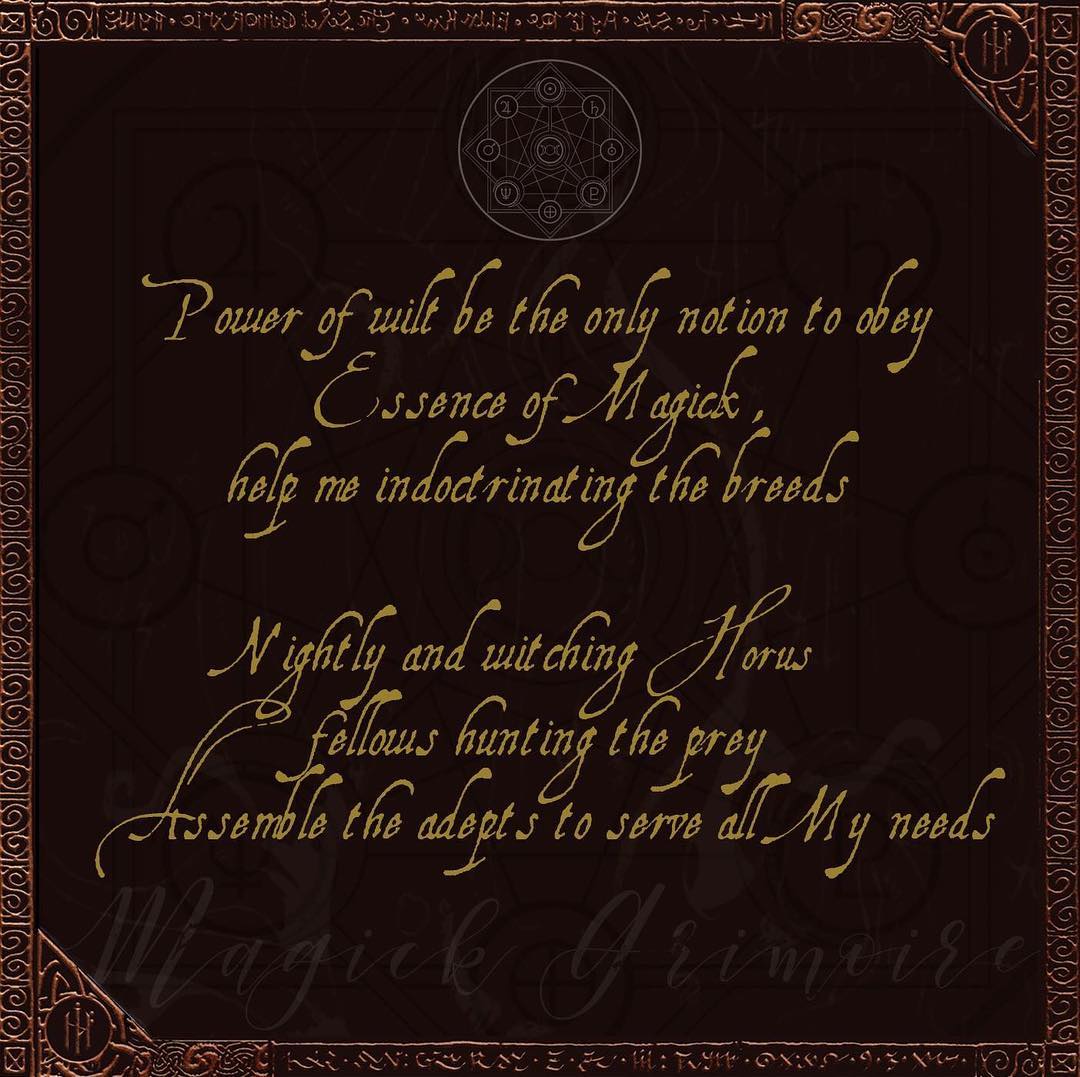 Power of wilt be the only notion to obey
Essence of Magick,
help me indoctrinating the breeds
Nightly and witching Horus
fellows hunting the prey
Assemble the adepts to serve all My needs
Magick Grimoire